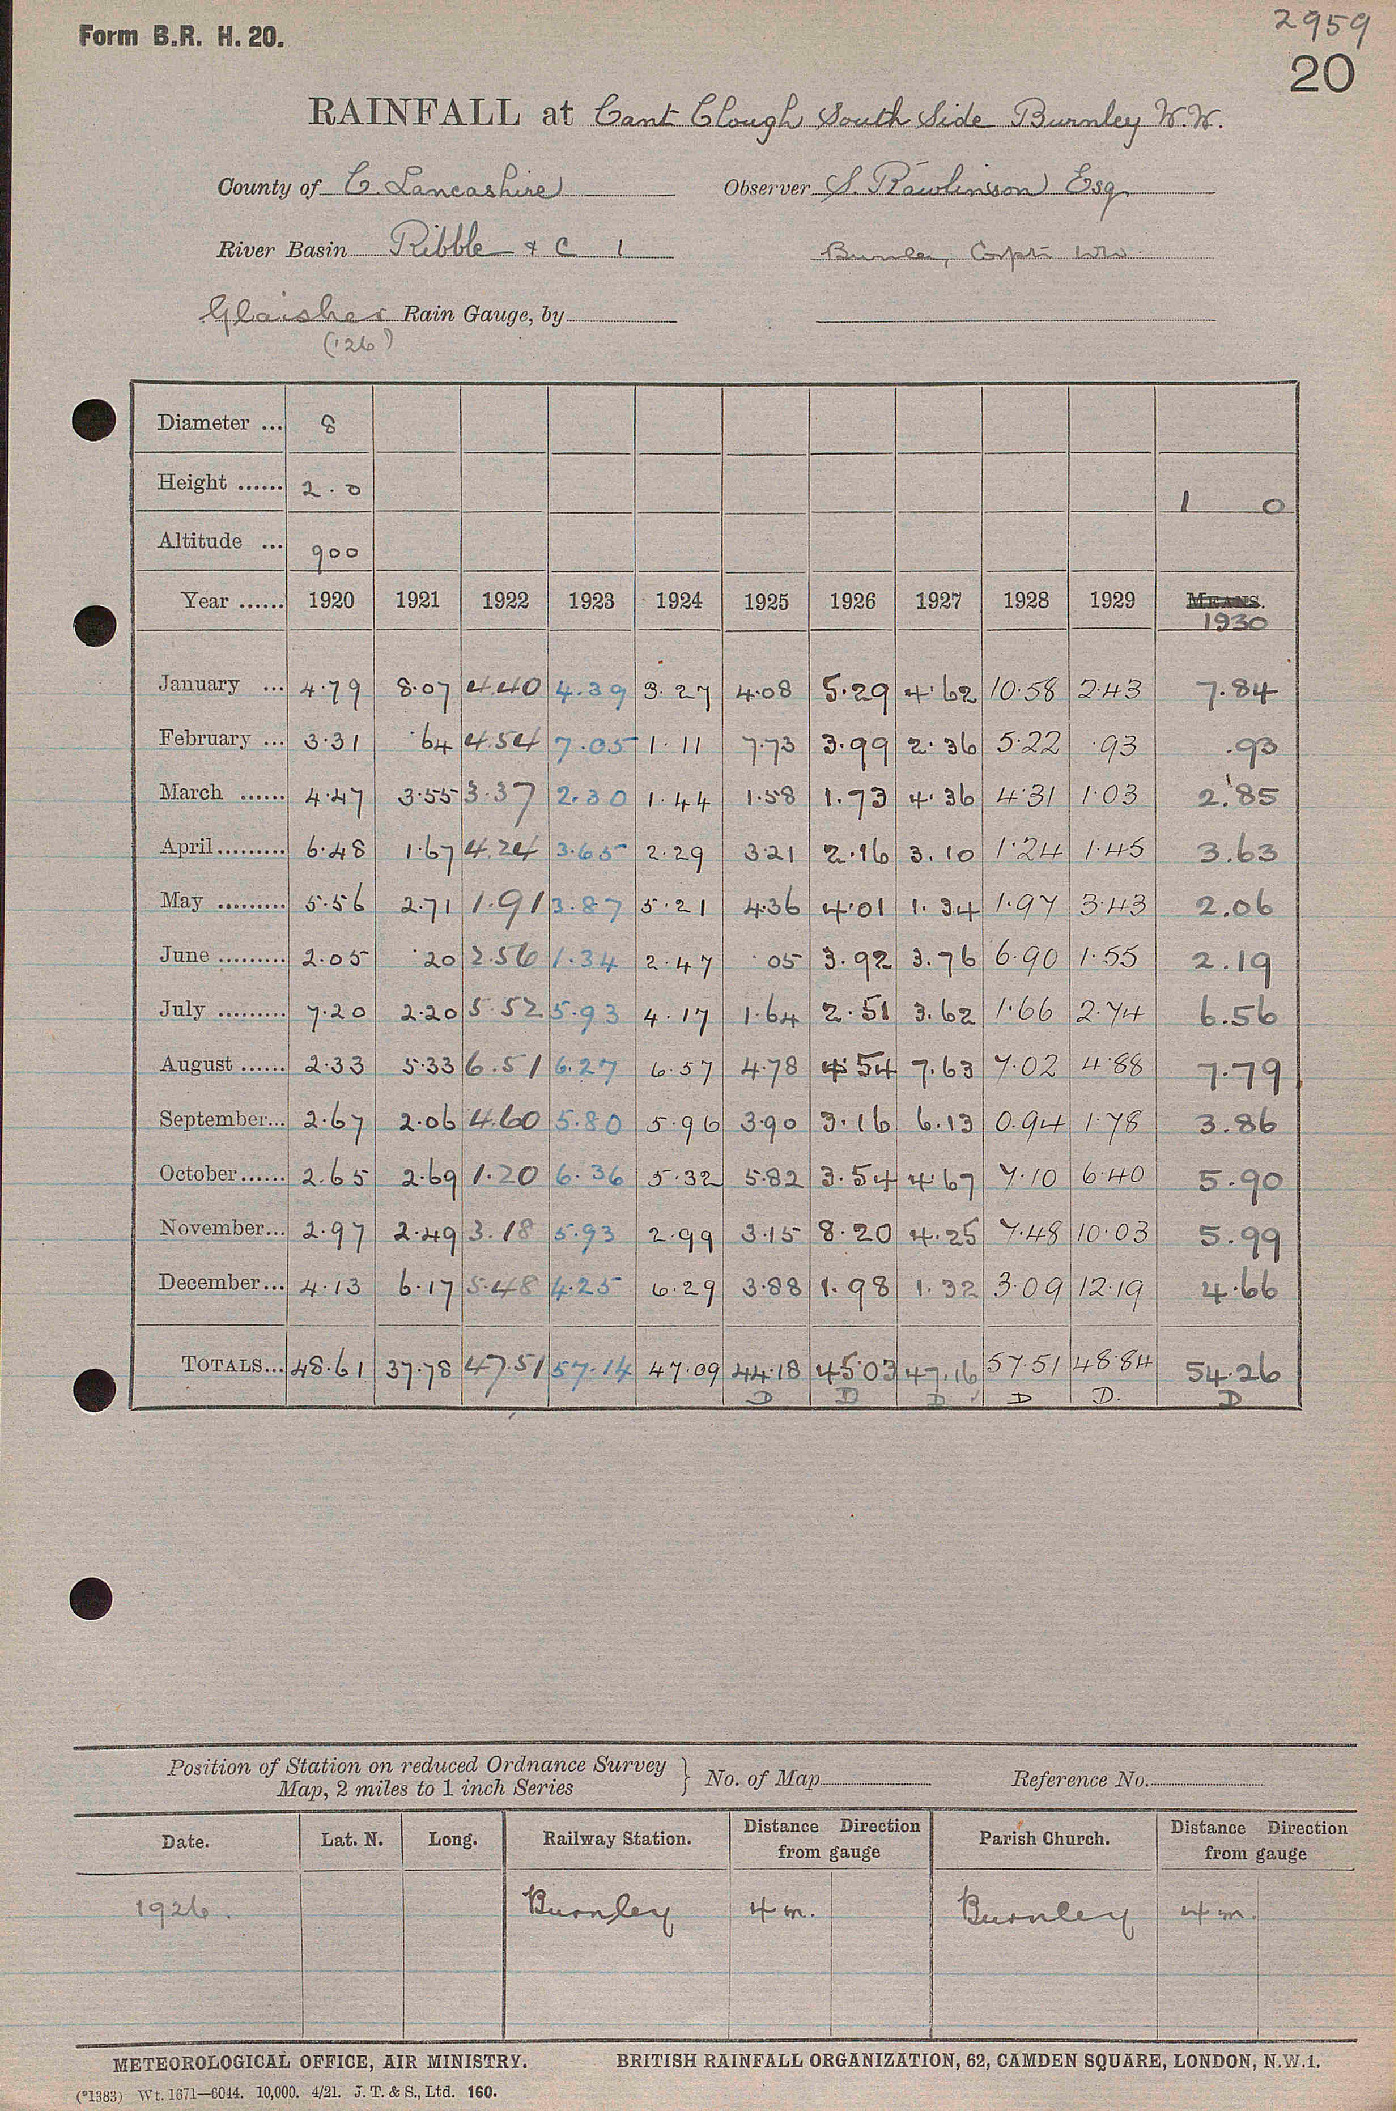 2959
Form B.R. H. 20.
20
RAINFALL at Cant Clough South Side Burnley W.W.
County of E. Lancashire Observer S. Rawlinson Esq
River Basin Ribble & C 1 Burnley Corptn WW
Glaisher Rain Gauge, by
('26)
Diameter ... 8
Height ...... 2.0 1 0
Altitude ... 900
Year ...... 1920 1921 1922 1923 1924 1925 1926 1927 1928 1929 MEANS.
1930
January ... 4.79 8.07 4.40 4.39 3.27 4.08 5.29 4.62 10.58 2.43 7.84
February ... 3.31 .64 4.54 7.05 1.11 7.73 3.99 2.36 5.22 .93 .93
March ...... 4.47 3.55 3.37 2.30 1.44 1.58 1.73 4.36 4.31 1.03 2.85
April ......... 6.48 1.67 4.24 3.65 2.29 3.21 2.16 3.10 1.24 1.45 3.63
May ......... 5.56 2.71 1.91 3.87 5.21 4.36 4.01 1.34 1.97 3.43 2.06
June ......... 2.05 .20 2.56 1.34 2.47 .05 3.92 3.76 6.90 1.55 2.19
July ......... 7.20 2.20 5.52 5.93 4.17 1.64 2.51 3.62 1.66 2.74 6.56
August ...... 2.33 5.33 6.51 6.27 6.57 4.78 4.54 7.63 7.02 4.88 7.79
September... 2.67 2.06 4.60 5.80 5.96 3.90 3.16 6.13 0.94 1.78 3.86
October...... 2.65 2.69 1.20 6.36 5.32 5.82 3.54 4.67 7.10 6.40 5.90
November... 2.97 2.49 3.18 5.93 2.99 3.15 8.20 4.25 7.48 10.03 5.99
December... 4.13 6.17 5.48 4.25 6.29 3.88 1.98 1.32 3.09 12.19 4.66
TOTALS... 48.61 37.78 47.51 57.14 47.09 44.18 45.03 47.16 57.51 48.84 54.26
D D D D D. D
Position of Station on reduced Ordnance Survey
Map, 2 miles to 1 inch Series } No. of Map Reference No.
Date. Lat. N. Long. Railway Station. Distance Direction from gauge Parish Church. Distance Direction from gauge
1926. Burnley 4 m. Burnley 4 m.
METEOROLOGICAL OFFICE, AIR MINISTRY. BRITISH RAINFALL ORGANIZATION, 62, CAMDEN SQUARE, LONDON, N.W.1.
(*1383) Wt. 1671—6044. 10,000. 4/21. J. T. & S., Ltd. 160.